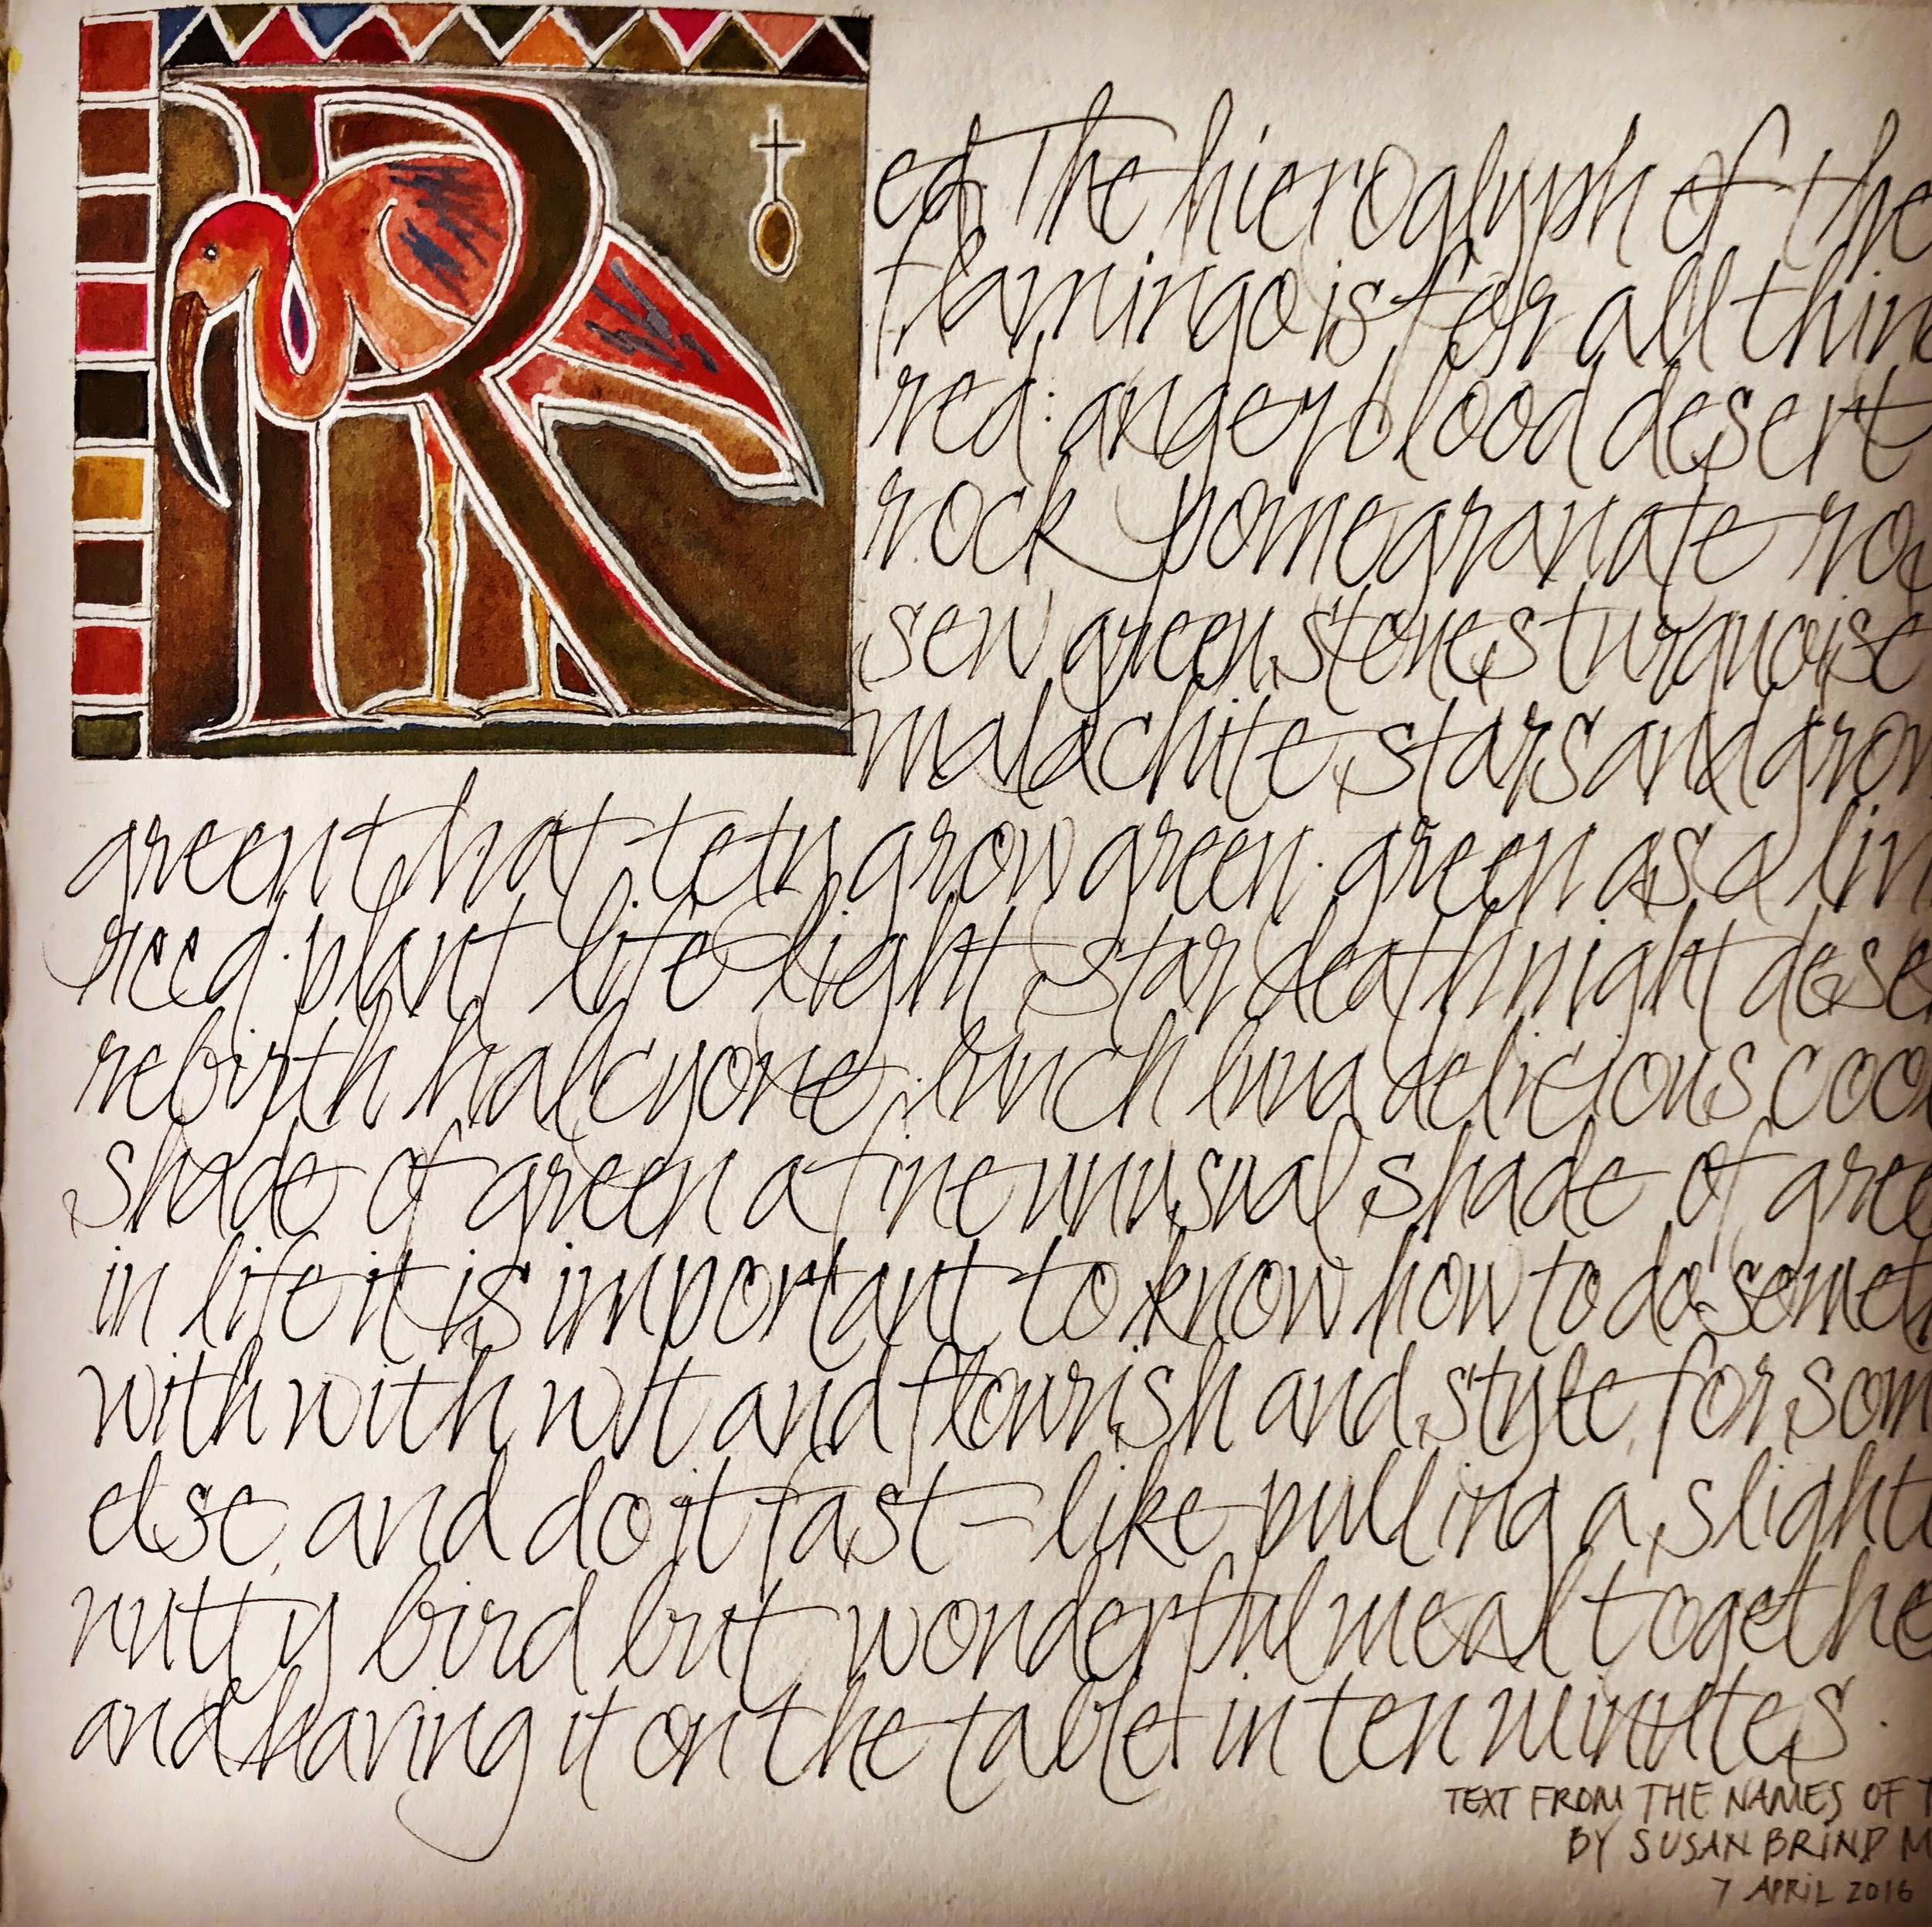 Red. The hieroglyph of the
flamingo is for all thin
red: anger blood desert
rock pomegranate ro
sew green stones turquoise
malachite stars and grow
green that tety grow green. green as a livin
reed. plant life light star death night dese
rebirth halcyone. lunch
delicious cool
shade of green a fine unusual shade of gree
in life it is important to know how to do someth
with with wit and flourish and style, for som
else, and do it fast – like pulling a slight
nutty bird but wonderful meal together
and having it on the table in ten minutes.
TEXT FROM THE NAMES OF T
BY SUSAN BRIND M
7 APRIL 2016